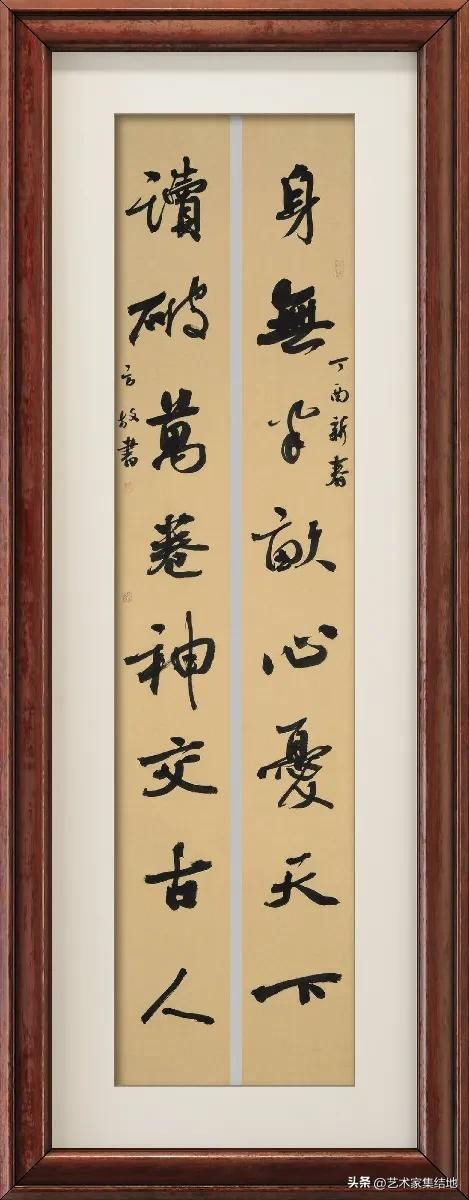 身無半畝心憂天下
丁酉新春
讀破萬卷神交古人
書
头条 @艺术家集结地